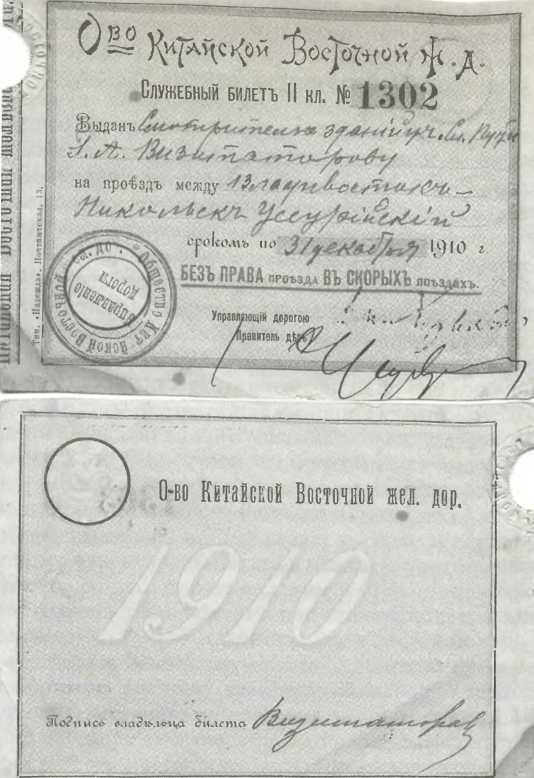 О-во Китайской Восточной Ж. Д.
Служебный билетъ II кл. № 1302
Выданъ Смотрителю зданій уч. Сл. Пути
І. А. Визитаторову
на проѣздъ между Владивостокъ –
Никольскъ Уссурійскій
срокомъ по 31 декабря 1910 г
БЕЗЪ ПРАВА проѣзда ВЪ СКОРЫХЪ поѣздахъ.
Управляющій дорогою
Правитель дѣлъ
Общество Китайской Восточной
Управленіе
дороги
Тип. „Надежда“, Почтамтская, 13.
О-во Китайской Восточной жел. дор.
1910
Подпись владѣльца билета Визитаторов